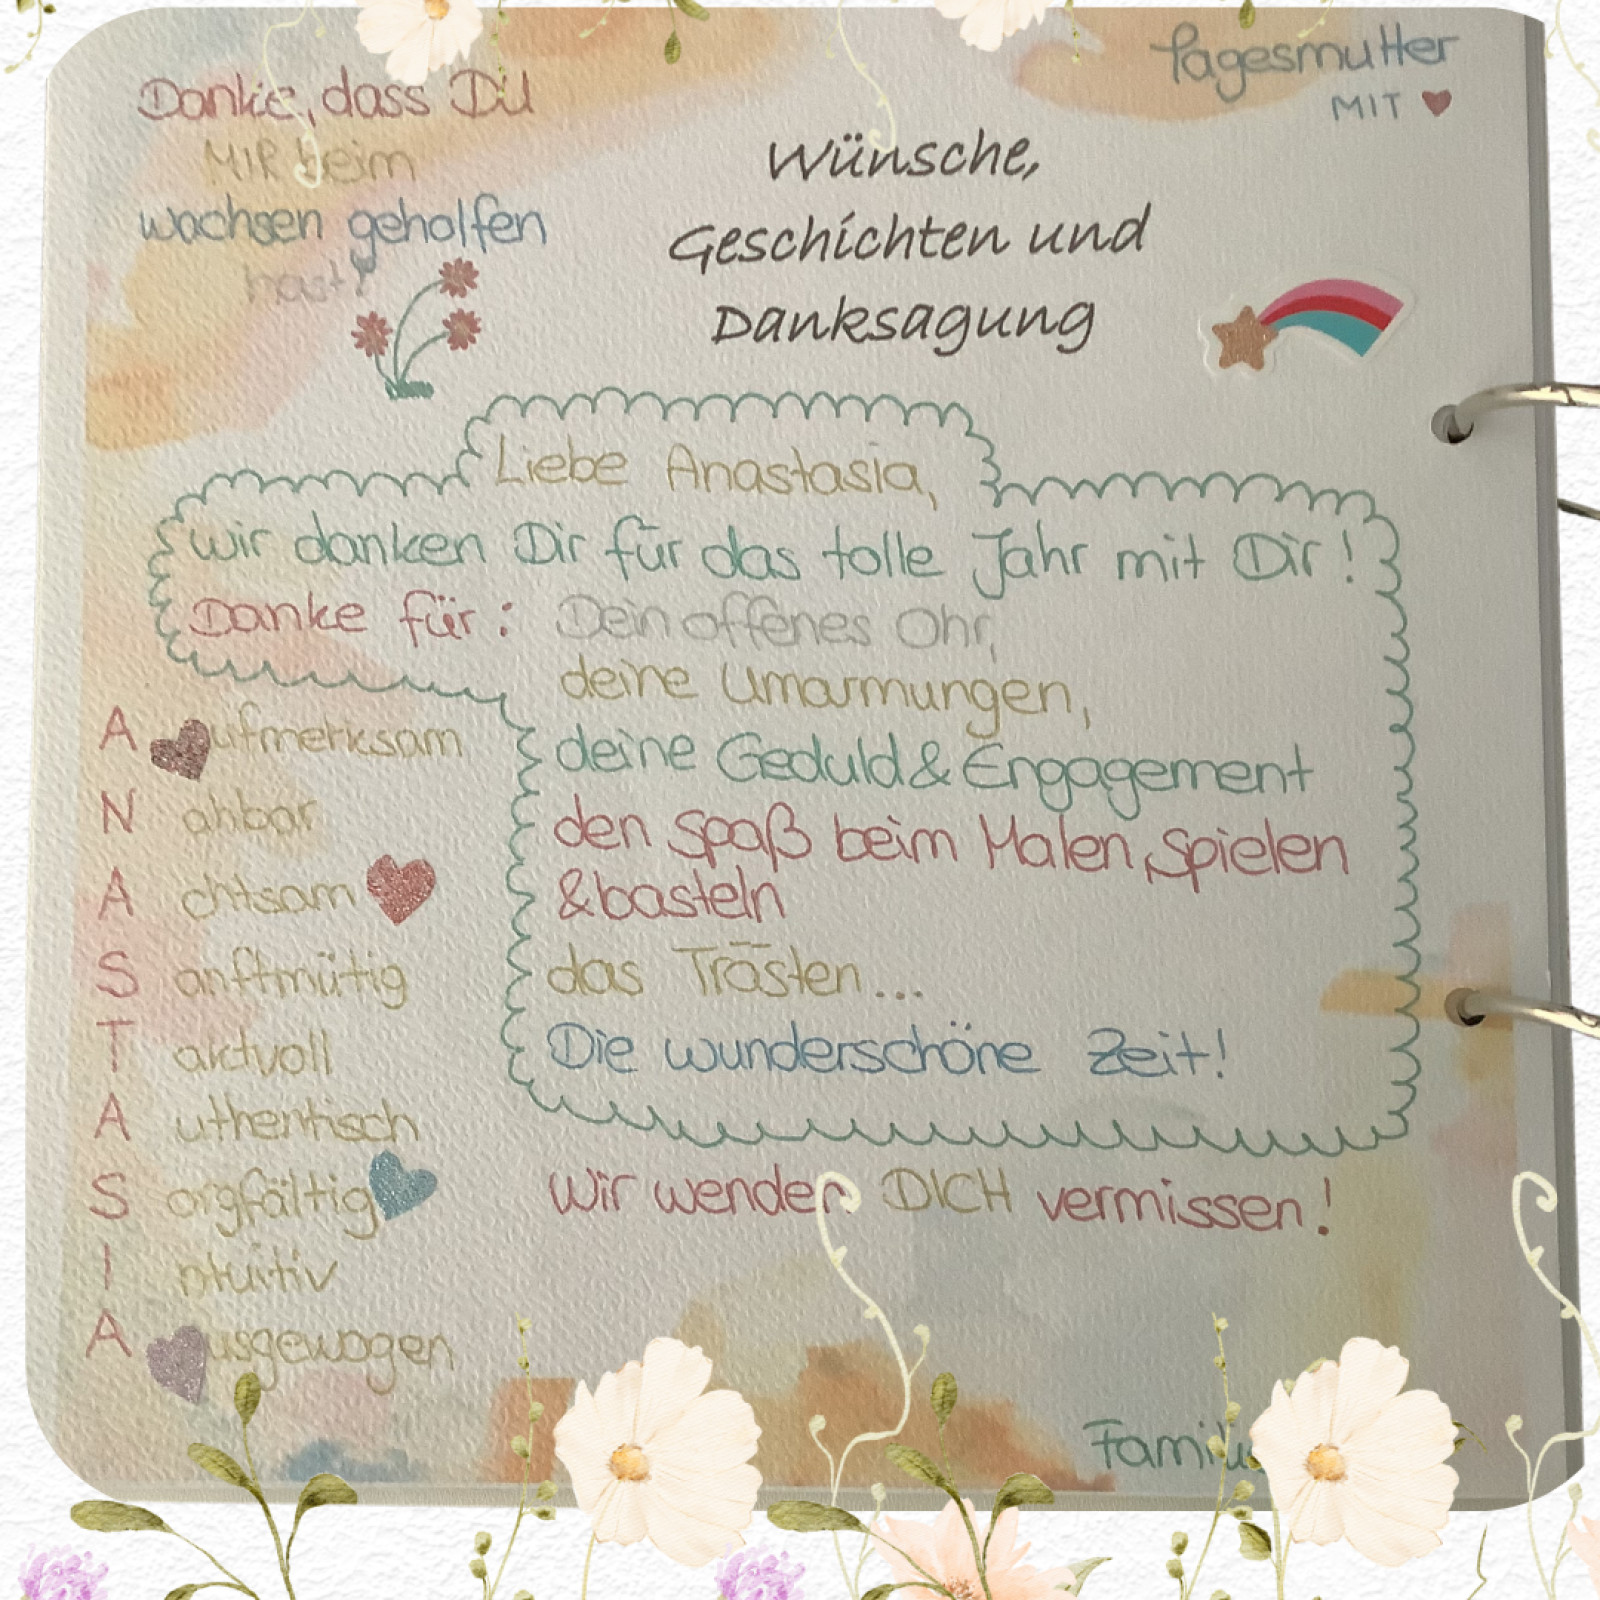 Danke, dass DU
MIR beim
wachsen geholfen
hast!
Tagesmutter
MIT
Wünsche,
Geschichten und
Danksagung
Liebe Anastasia,
wir danken Dir für das tolle Jahr mit Dir!
Danke für: Dein offenes Ohr,
deine Umarmungen,
deine Geduld & Engagement
den Spaß beim Malen, Spielen
& basteln
das Trösten...
Die wunderschöne Zeit!
Wir werden DICH vermissen!
A ufmerksam
N ahbar
A chtsam
S anftmütig
T aktvoll
A uthentisch
S orgfältig
I ntuitiv
A usgewogen
Familie